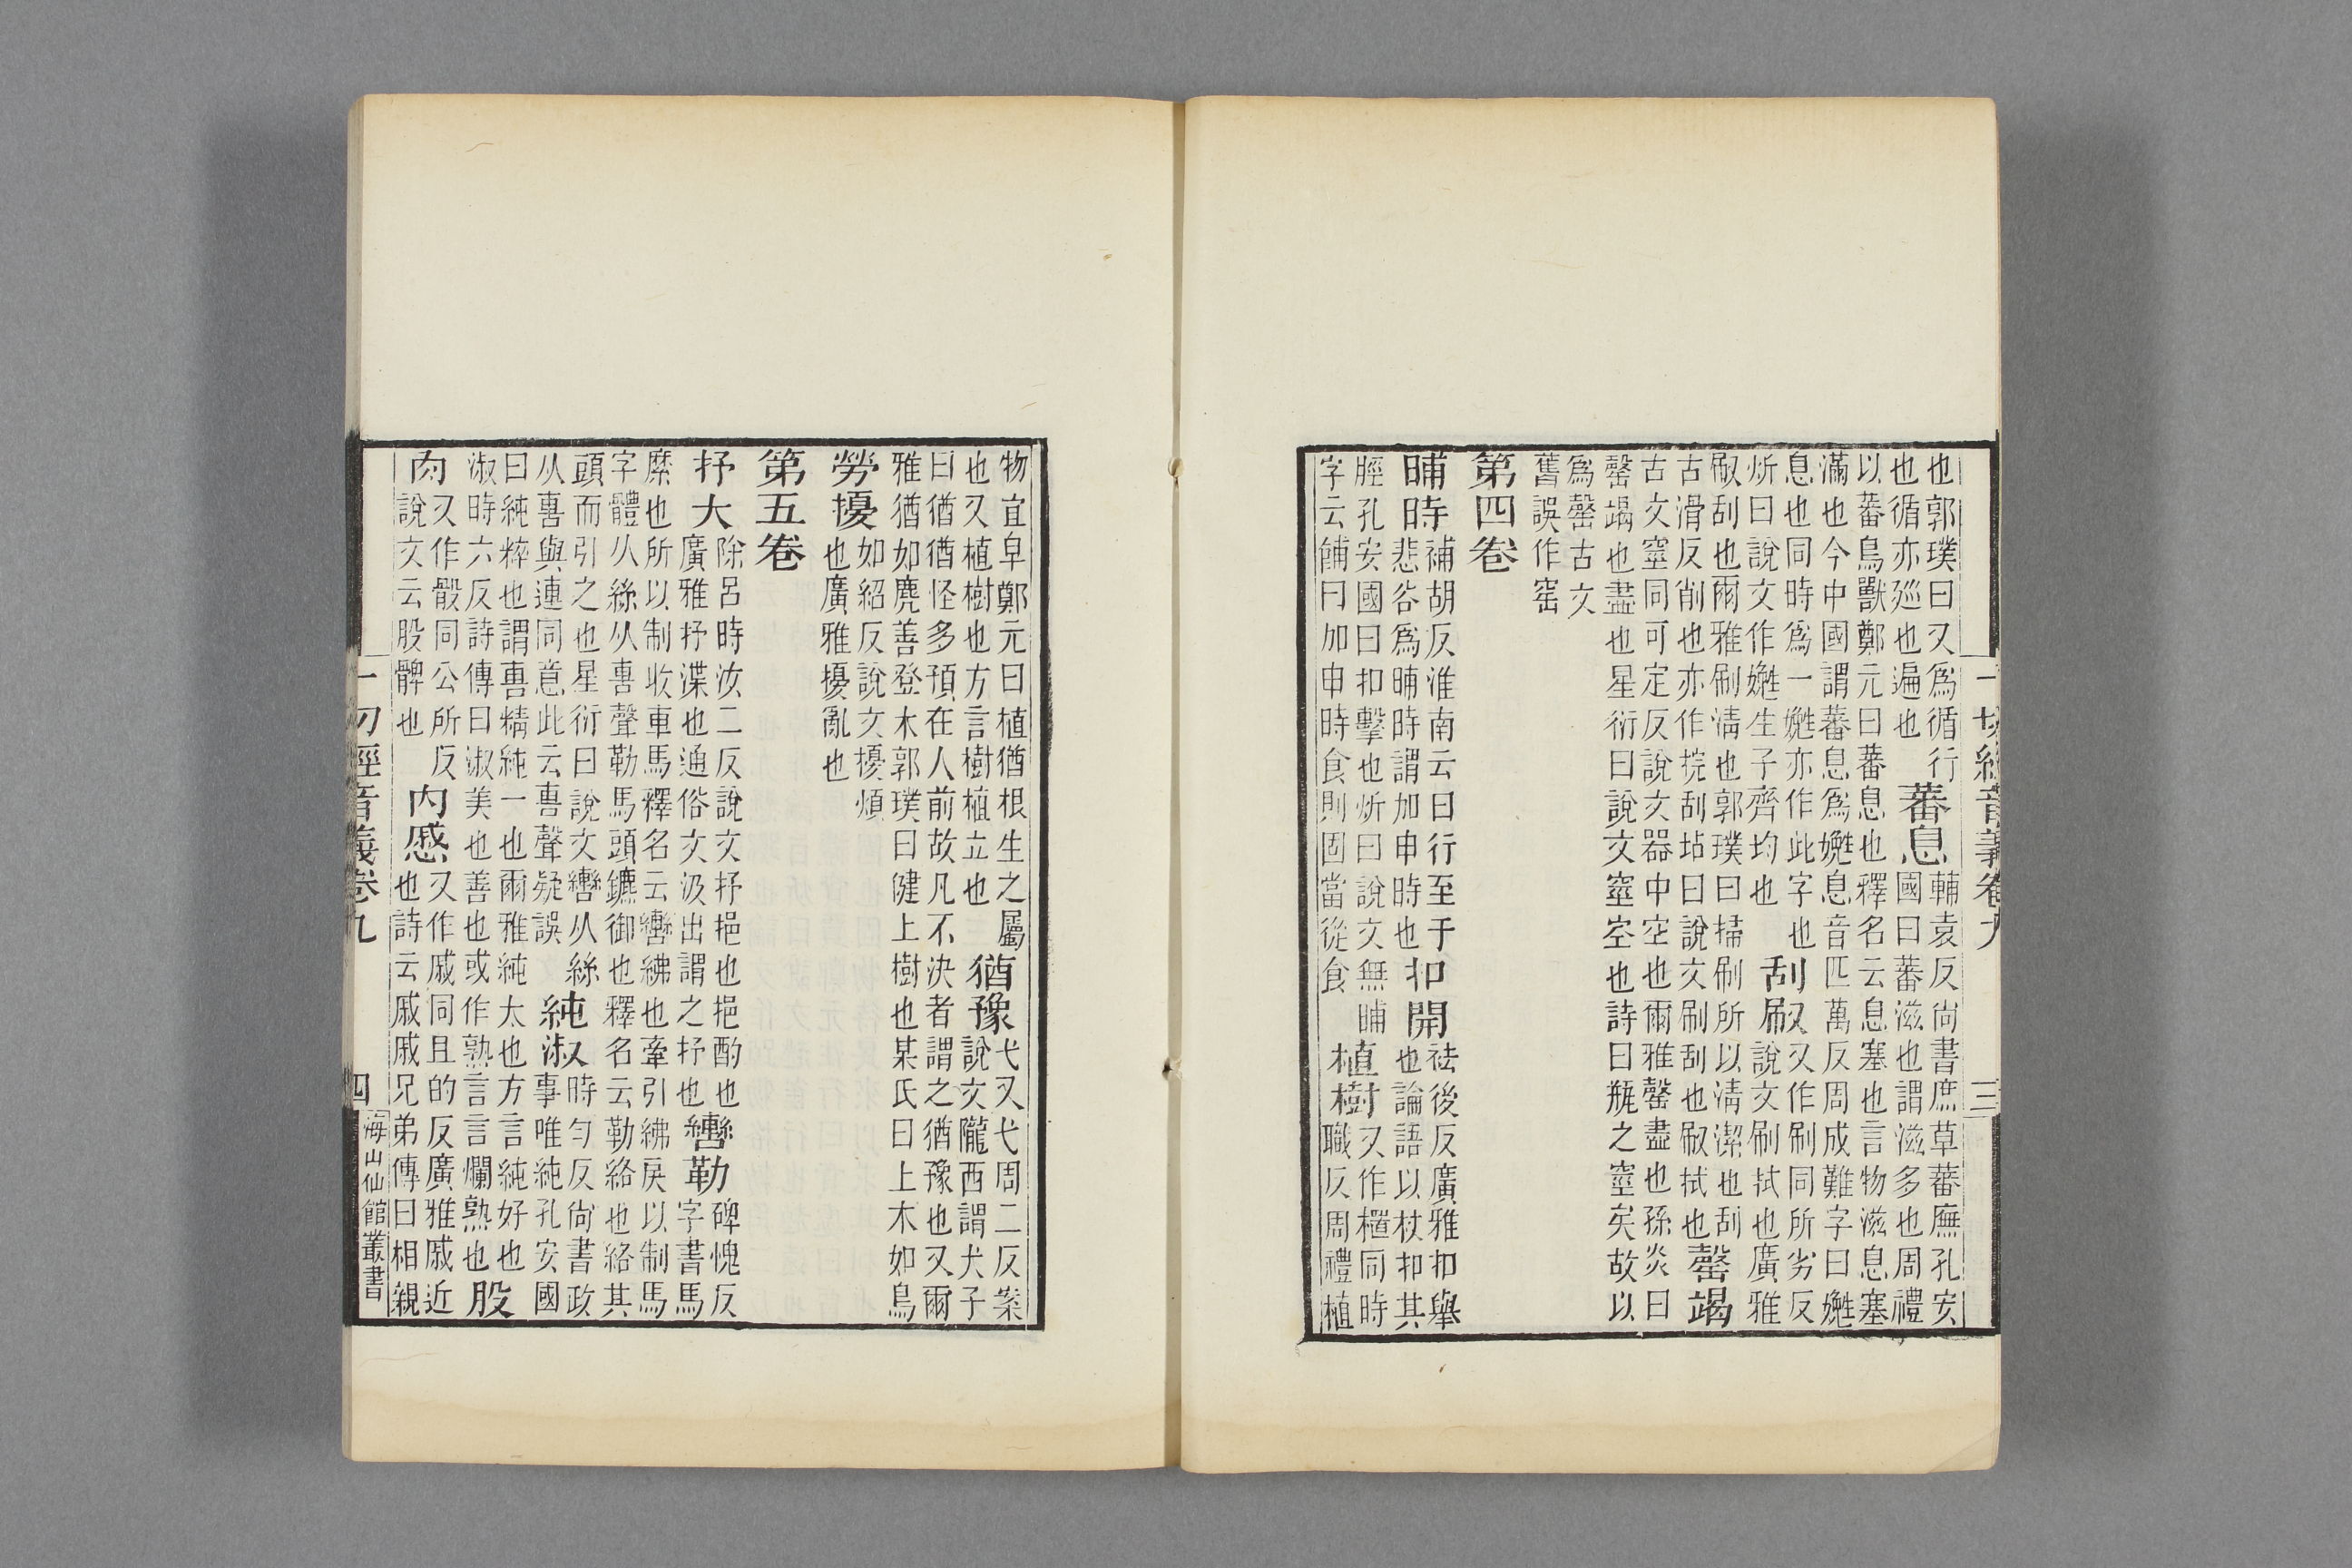 一切經音義卷九 三
也郭璞曰又爲循行
也循亦廵也遍也
蕃息
輔袁反尚書庶草蕃廡孔安
國曰蕃滋也謂滋多也周禮
以蕃鳥獸鄭元曰蕃息也釋名云息塞也言物滋息塞
滿也今中國謂蕃息爲嬎息音匹萬反周成難字曰嬎
息也同時爲一嬎亦作此字也
炘曰說文作嬎生子齊均也
刮㕞
又作刷同所劣反
說文刷拭也廣雅
㕞刮也爾雅刷淸也郭璞曰掃刷所以淸潔也刮
古滑反削也亦作捖刮坫曰說文刷刮也㕞拭也
罄竭
古文窒同可定反說文器中空也爾雅罄盡也孫炎曰
罄竭也盡也星衍曰說文窒空也詩曰瓶之窒矣故以
爲罄古文
舊誤作窑
第四卷
晡時
補胡反淮南云日行至于
悲谷爲晡時謂加申時也
扣開
祛後反廣雅扣舉
也論語以杖扣其
脛孔安國曰扣擊也炘曰說文無晡
字云餔日加申時食則固當從食
植樹
又作櫃同時
職反周禮植
物宜阜鄭元曰植猶根生之屬
也又植樹也方言樹植立也
猶豫
弋又弋周二反案
說文隴西謂犬子
曰猶猶怪多預在人前故凡不決者謂之猶豫也又爾
雅猶如麂善登木郭璞曰健上樹也某氏曰上木如鳥
勞擾
如紹反說文擾煩
也廣雅擾亂也
第五卷
抒大
除呂時汝二反說文抒挹也挹酌也
廣雅抒渫也通俗文汲出謂之抒也
轡勒
碑愧反
字書馬
縻也所以制收車馬釋名云轡紼也牽引紼戾以制馬
字體从絲从軎聲勒馬頭鑣御也釋名云勒絡也絡其
頭而引之也星衍曰說文轡从絲
从軎與連同意此云軎聲疑誤
純淑
時勻反尚書政
事唯純孔安國
曰純粹也謂專精純一也爾雅純大也方言純好也
淑時六反詩傳曰淑美也善也或作熟言言爛熟也
股
肉
又作骰同公所反
說文云股髀也
內慼
又作戚同且的反廣雅戚近
也詩云戚戚兄弟傳曰相親
一切經音義卷九 四 海山仙館叢書